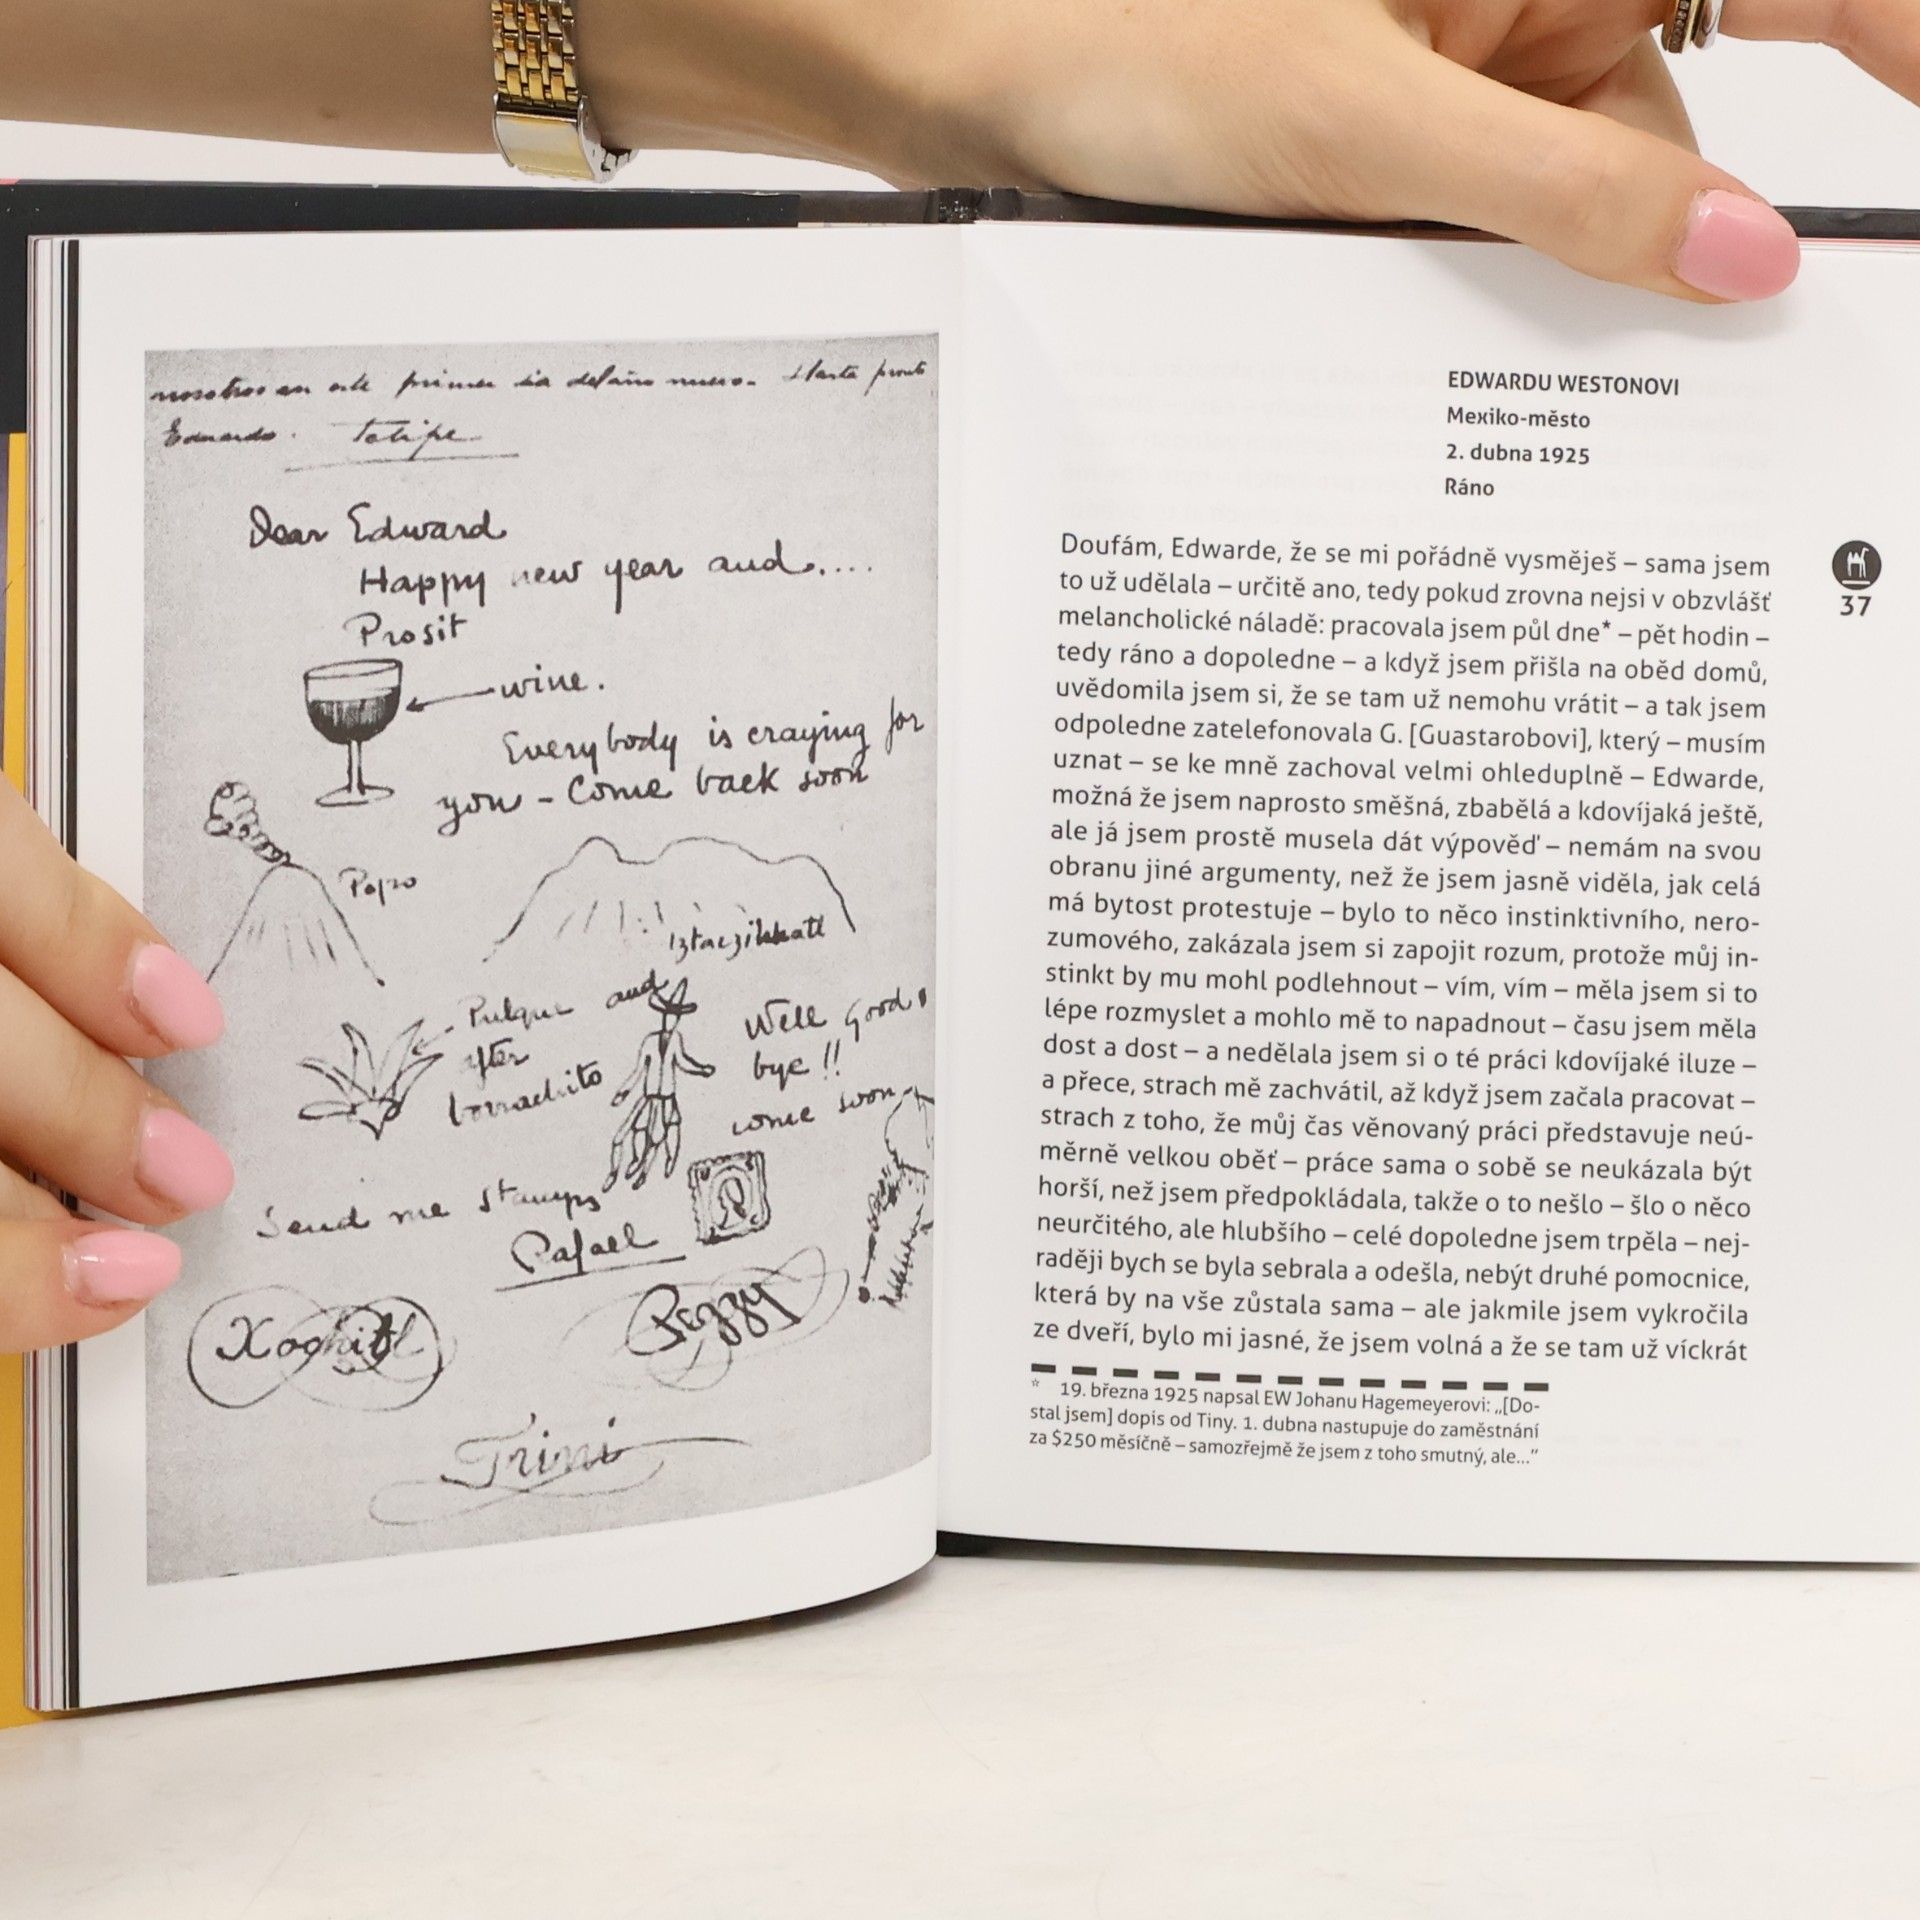 nosotros en este primer dia del año nuevo. Hasta pronto
Eduardo. Felipe
Dear Edward
Happy new year and....
Prosit
wine.
Everybody is craying for
you - Come back soon
Popo
Iztaczihuatl
Pulque and
after
borrachito
Well good
bye !!
come soon
Send me stamps
Rafael
Xochitl
Peggy
Trini
EDWARDU WESTONOVI
Mexiko-město
2. dubna 1925
Ráno
Doufám, Edwarde, že se mi pořádně vysměješ – sama jsem
to už udělala – určitě ano, tedy pokud zrovna nejsi v obzvlášť
melancholické náladě: pracovala jsem půl dne* – pět hodin –
tedy ráno a dopoledne – a když jsem přišla na oběd domů,
uvědomila jsem si, že se tam už nemohu vrátit – a tak jsem
odpoledne zatelefonovala G. [Guastarobovi], který – musím
uznat – se ke mně zachoval velmi ohleduplně – Edwarde,
možná že jsem naprosto směšná, zbabělá a kdovíjaká ještě,
ale já jsem prostě musela dát výpověď – nemám na svou
obranu jiné argumenty, než že jsem jasně viděla, jak celá
má bytost protestuje – bylo to něco instinktivního, nero-
zumového, zakázala jsem si zapojit rozum, protože můj in-
stinkt by mu mohl podlehnout – vím, vím – měla jsem si to
lépe rozmyslet a mohlo mě to napadnout – času jsem měla
dost a dost – a nedělala jsem si o té práci kdovíjaké iluze –
a přece, strach mě zachvátil, až když jsem začala pracovat –
strach z toho, že můj čas věnovaný práci představuje neú-
měrně velkou oběť – práce sama o sobě se neukázala být
horší, než jsem předpokládala, takže o to nešlo – šlo o něco
neurčitého, ale hlubšího – celé dopoledne jsem trpěla – nej-
raději bych se byla sebrala a odešla, nebýt druhé pomocnice,
která by na vše zůstala sama – ale jakmile jsem vykročila
ze dveří, bylo mi jasné, že jsem volná a že se tam už víckrát
37
* 19. března 1925 napsal EW Johanu Hagemeyerovi: „[Do-
stal jsem] dopis od Tiny. 1. dubna nastupuje do zaměstnání
za $250 měsíčně – samozřejmě že jsem z toho smutný, ale..."